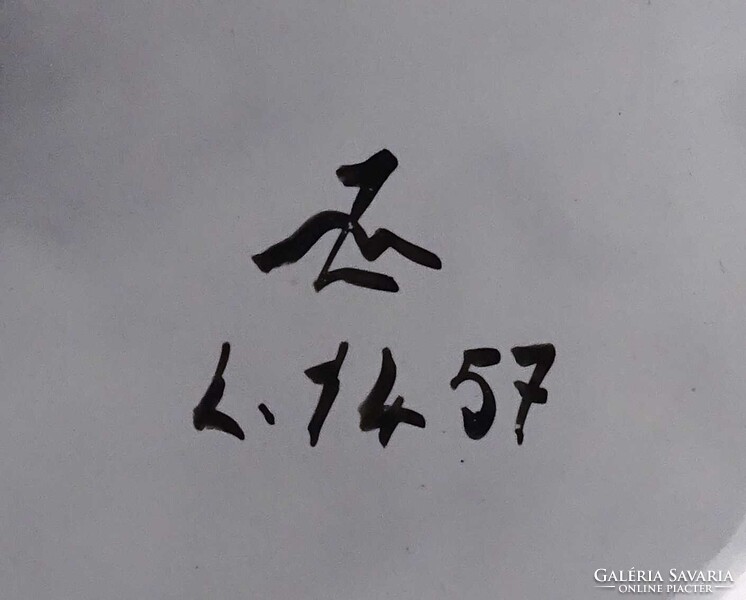 L. 14 57
GALÉRIA SAVARIA
ONLINE PIACTÉR